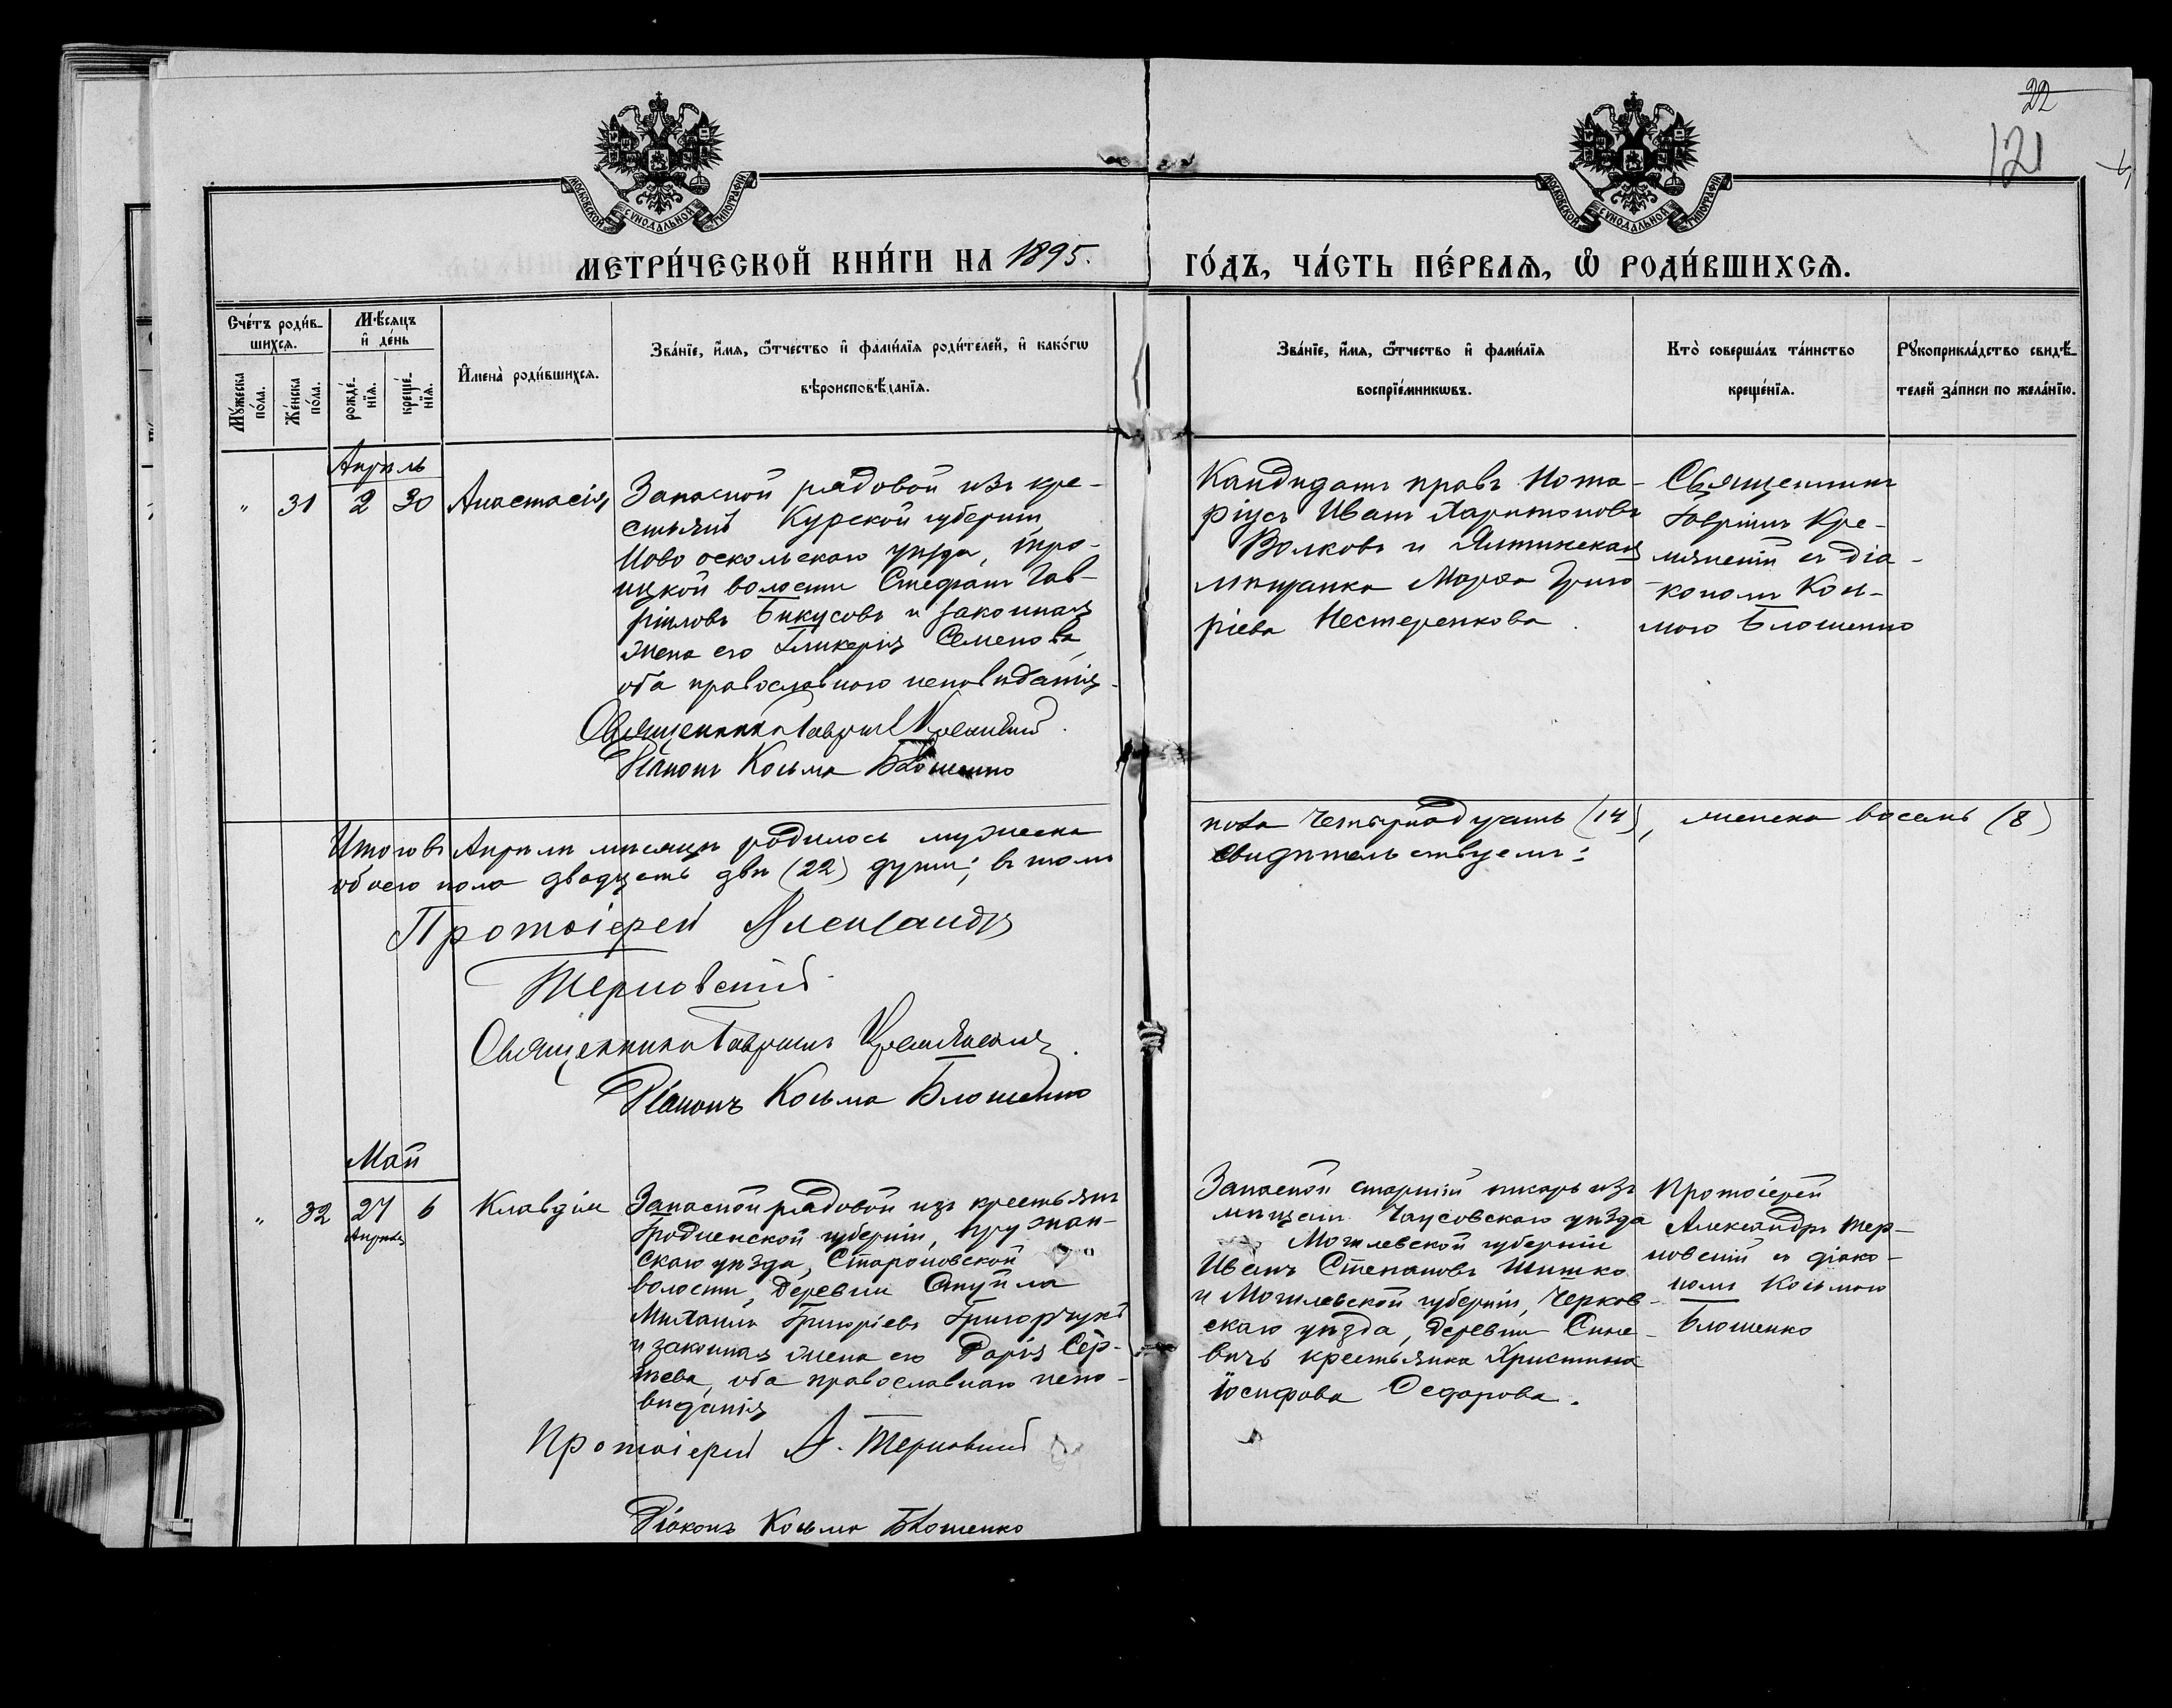 22
121
МОСКОВСКОЙ СѴНОДАЛЬНОЙ ТИПОГРАФІИ
МОСКОВСКОЙ СѴНОДАЛЬНОЙ ТИПОГРАФІИ
МЕТРИ́ЧЕСКОЙ КНИ́ГИ НА 1895. ГО́ДЪ, ЧА́СТЬ ПЕ́РВАѦ, Ѡ҆ РОДИ́ВШИХСѦ.
Сче́тъ роди́в-
шихсѧ.
Мѣ́сѧцъ
и҆ де́нь
Мꙋ́жеска
по́ла.
Же́нска
по́ла.
рожде́-
нїѧ.
креще́-
нїѧ.
И҆мена̀ роди́вшихсѧ.
Зва́нїе, и҆́мѧ, ѻ҆́тчество и҆ фами́лїѧ роди́телей, и҆ како́гѡ
вѣроисповѣ́данїѧ.
Зва́нїе, и҆́мѧ, ѻ҆́тчество и҆ фами́лїѧ
воспрїе́мникѡвъ.
Кто̀ соверша́лъ та́инство
креще́нїѧ.
Рꙋкоприкла́дство свидѣ́-
телей за́писи по жела́нїю.
Апрѣль
" 31 2 30 Анастасія
Запасной рядовой изъ кре-
стьянъ Курской губерніи,
Ново оскольскаго уѣзда, Тро-
ицкой волости Стефанъ Гав-
ріиловъ Бикусовъ и законная
жена его Гликерія Семенова,
оба православнаго исповѣданія.
Священникъ Гавріилъ
Діаконъ Косьма Блошенко
Кандидатъ правъ Нота-
ріусъ Иванъ Харитоновъ
Волковъ и Ялтинская
мѣщанка Марѳа Григо-
ріева Нестеренкова.
Священникъ
Гавріилъ Кре-
мянскій съ діа-
кономъ Кось-
мою Блошенко
Итого въ Апрѣлѣ мѣсяцѣ родилось мужеска
обоего пола двадцать двѣ (22) души; въ томъ
пола четырнадцать (14), женска восемь (8)
свидѣтельствуемъ:
Протоіерей Александръ
Терновскій
Священникъ Гавріилъ
Діаконъ Косьма Блошенко
Май
" 32 27 6 Клавдія
Апрѣля
Запасной рядовой изъ крестьянъ
Гродненской губерніи, Пружан-
скаго уѣзда,
волости, деревни
Михаилъ Григоріевъ Григорчукъ
и законная жена его Дарія Сер-
гѣева, оба православнаго испо-
вѣданія
Протоіерей А. Терновскій
Діаконъ Косьма Блошенко
Запасной старшій писарь изъ
мѣщанъ Чаусовскаго уѣзда
Могилевской губерніи
Иванъ Степановъ Шишко
и Могилевской губерніи, Черков-
скаго уѣзда, деревни Сине-
вичъ крестьянка Христина
Іосифова Ѳедорова.
Протоіерей
Александръ Тер-
новскій съ діако-
номъ Косьмою
Блошенко